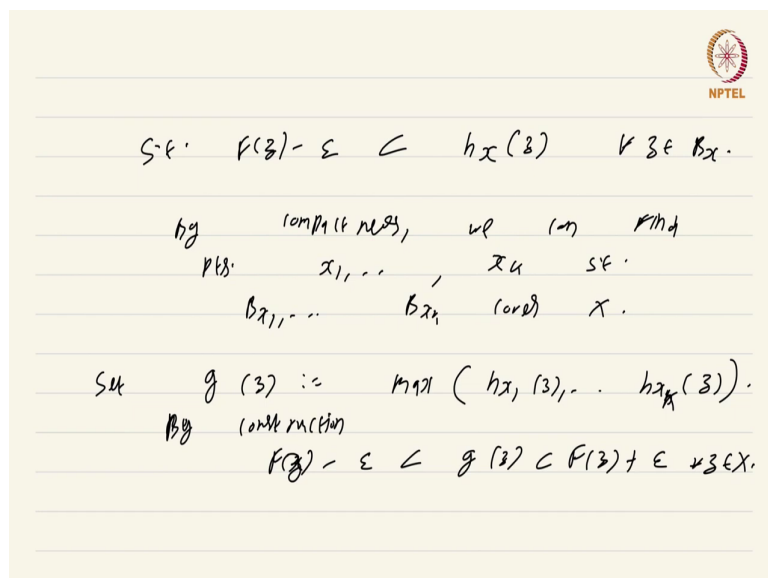 NPTEL
s.t. F(z) - ε < h_x(z) ∀ z ∈ B_x.
by compactness, we can find
pts. x_1, .. , x_k s.t.
B_{x_1}, ... B_{x_k} cover X.
Set g(z) := max ( h_{x_1}(z), .. h_{x_k}(z) ).
By construction
F(z) - ε < g(z) < F(z) + ε ∀ z ∈ X.